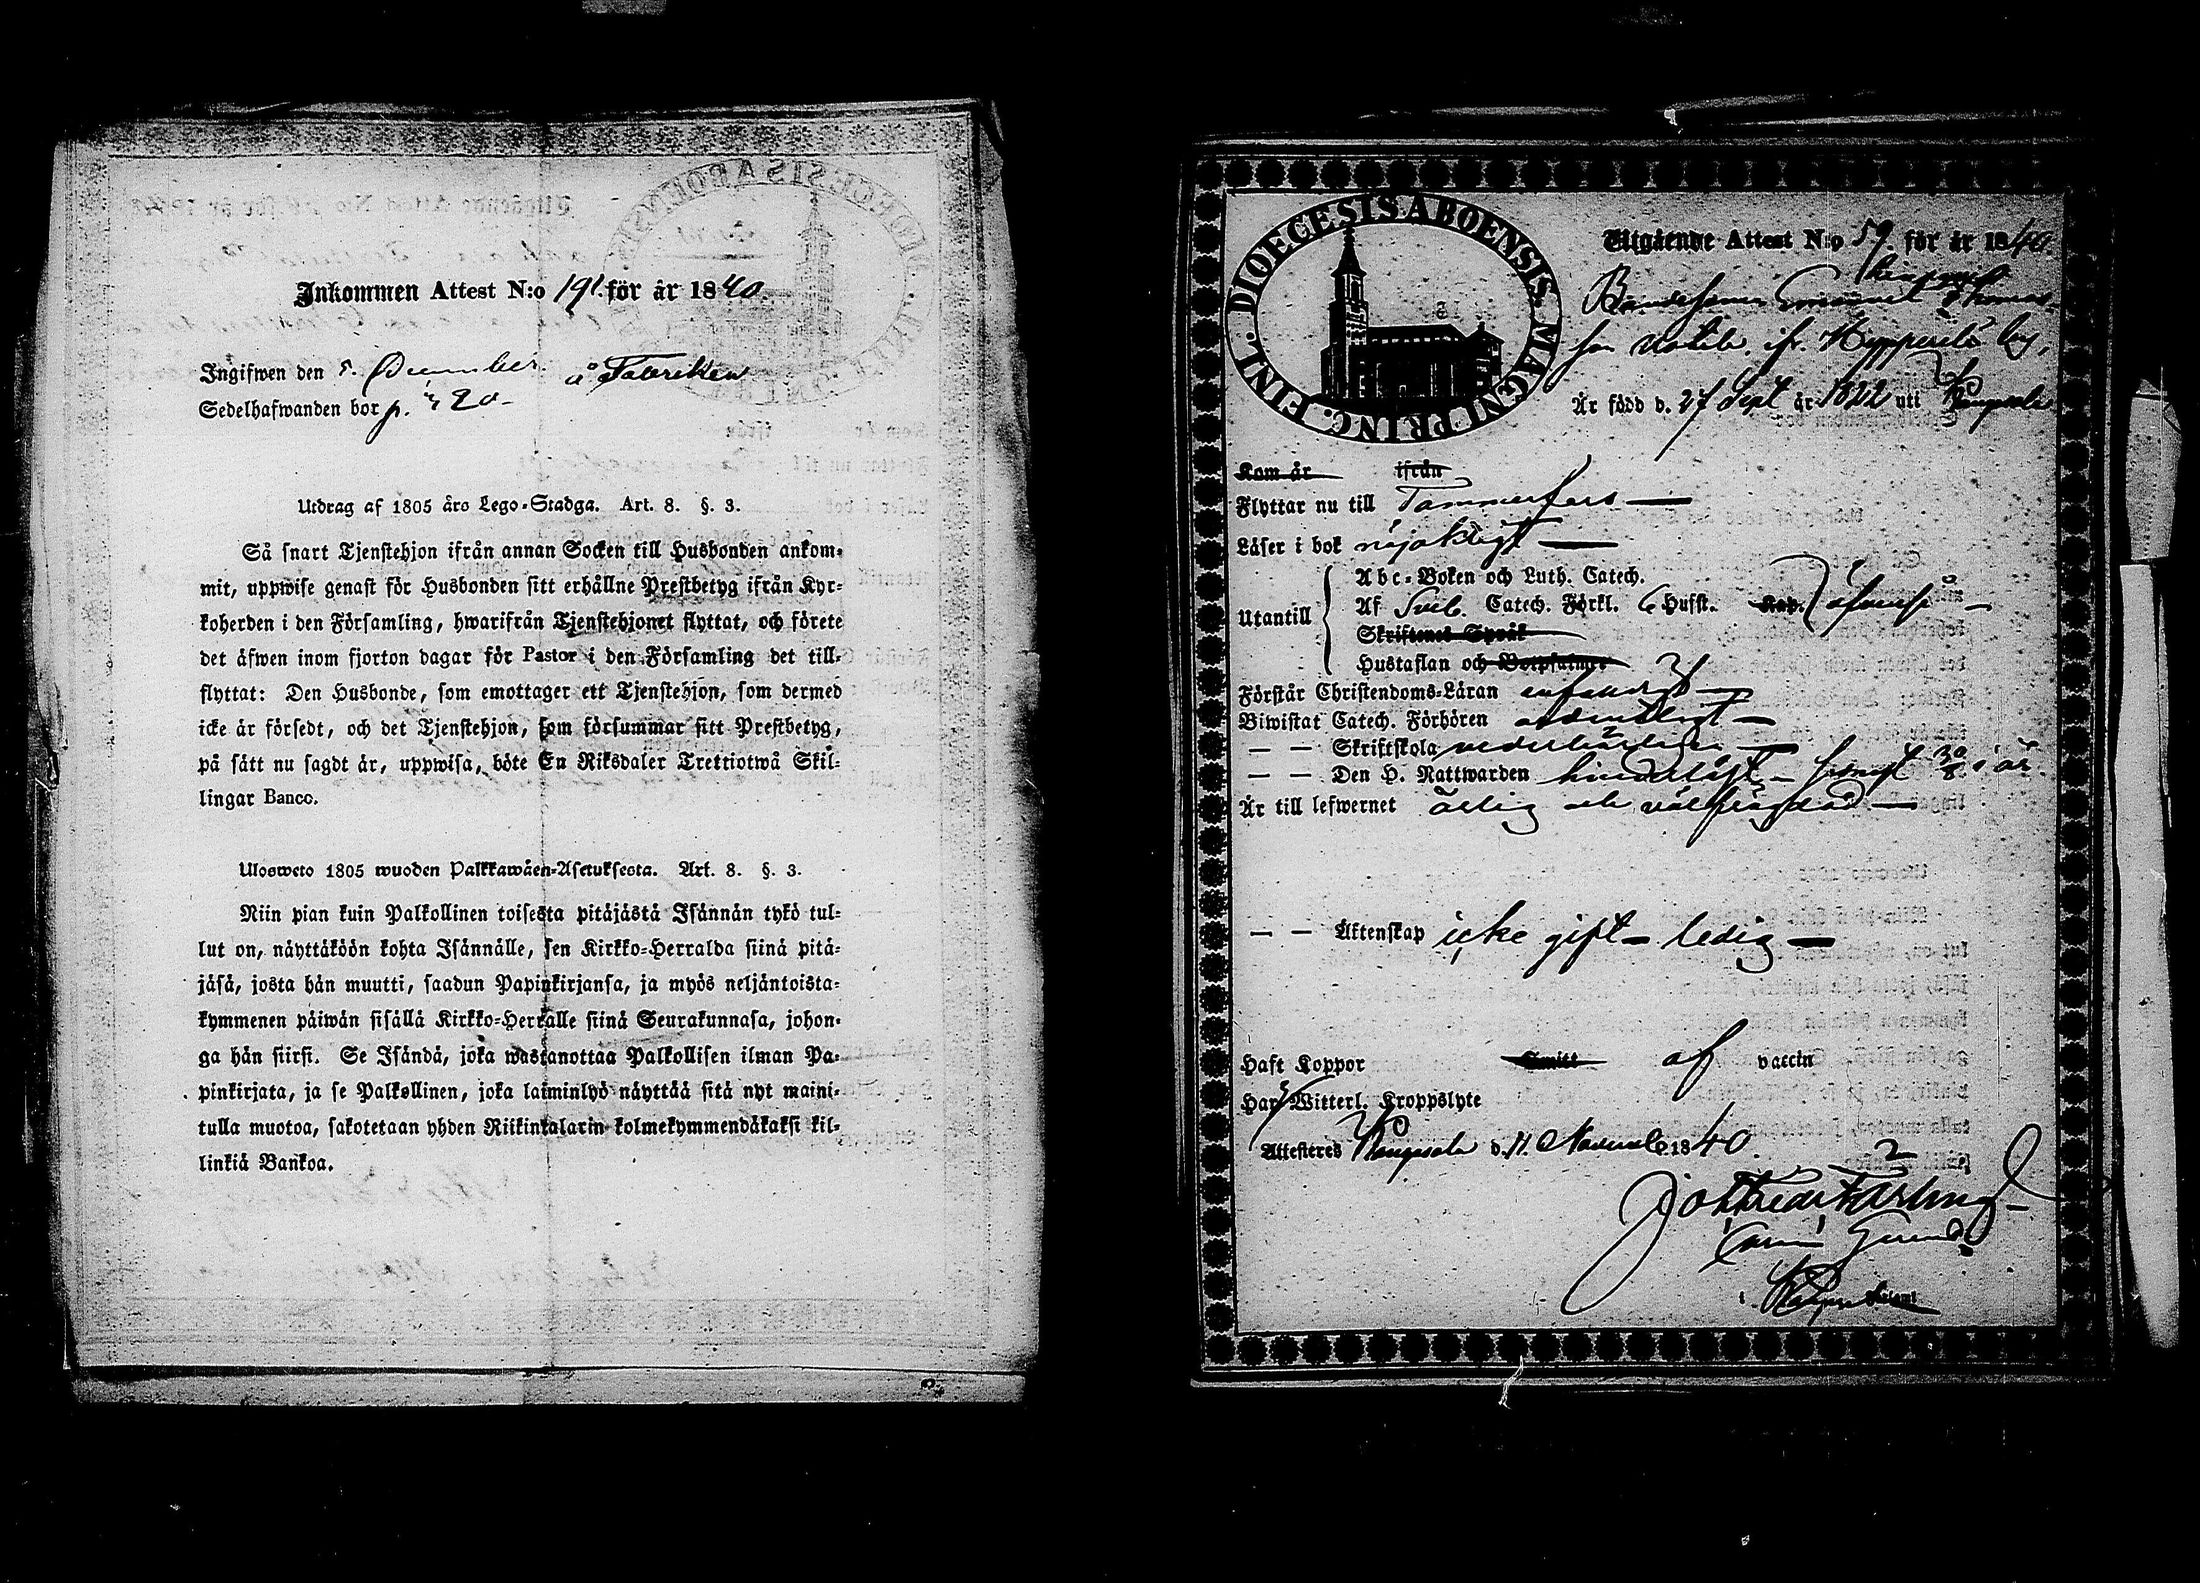 Inkommen Attest N:o 191. för år 1840.
Ingifwen den 5. December. å Fabriken
Sedelhafwanden bor p. 420 -
Utdrag af 1805 års Lego-Stadga. Art. 8. §. 3.
Så snart Tjenstehjon ifrån annan Socken till Husbonden ankom-
mit, uppwise genast för Husbonden sitt erhållne Prestbetyg ifrån Kyr-
koherden i den Församling, hwarifrån Tjenstehjonet flyttat, och förete
det äfwen inom fjorton dagar för Pastor i den Församling det till-
flyttat: Den Husbonde, som emottager ett Tjenstehjon, som dermed
icke är försedt, och det Tjenstehjon, som försummar sitt Prestbetyg,
på sätt nu sagdt är, uppwisa, böte En Riksdaler Trettiotwå Skil-
lingar Banco.
Ulosweto 1805 wuoden Palkkawäen-Asetuksesta. Art. 8. §. 3.
Niin pian kuin Palkollinen toisesta pitäjästä Isännän tykö tul-
lut on, näyttäköön kohta Isännälle, sen Kirkko-Herralda siinä pitä-
jäsä, josta hän muutti, saadun Papinkirjansa, ja myös neljäntoista-
kymmenen päiwän sisällä Kirkko-Herralle siinä Seurakunnasa, johon-
ga hän siirsi. Se Isändä, joka wastanottaa Palkollisen ilman Pa-
pinkirjata, ja se Palkollinen, joka laiminlyö näyttää sitä nyt maini-
tulla muotoa, sakotetaan yhden Riikintalarin kolmekymmendäkaksi kil-
linkiä Bankoa.
DIOECESIS ABOENSIS. MAGNI PRINC. FINL.
Utgående Attest N:o 59. för år 1840.
Bondesonen Emanuel Thomas-
son
by,
Är född d. 27 Sept år 1822 uti Kangasala
Kom år ifrån
Flyttar nu till Tammerfors —
Läser i bok nöjaktigt —
Utantill
Abc-Boken och Luth. Catech.
Af Sveb. Catech. Förkl. 6 Hufst. Kap.
Skriftenes Språk
Hustaflan och Botpsalmer
Förstår Christendoms-Läran enfaldigt —
Biwistat Catech. Förhören ordentligt —
— — Skriftskola vederbörligen —
— — Den H. Nattwarden hinderlöst — senast 30/8 i år.
Är till lefwernet ärlig och välfrägdad —
— — Äktenskap icke gift — ledig —
Haft Koppor Smitt af vaccin
Har Witterl. Kroppslyte
Attesteres Kangasala d. 11. November 1840.